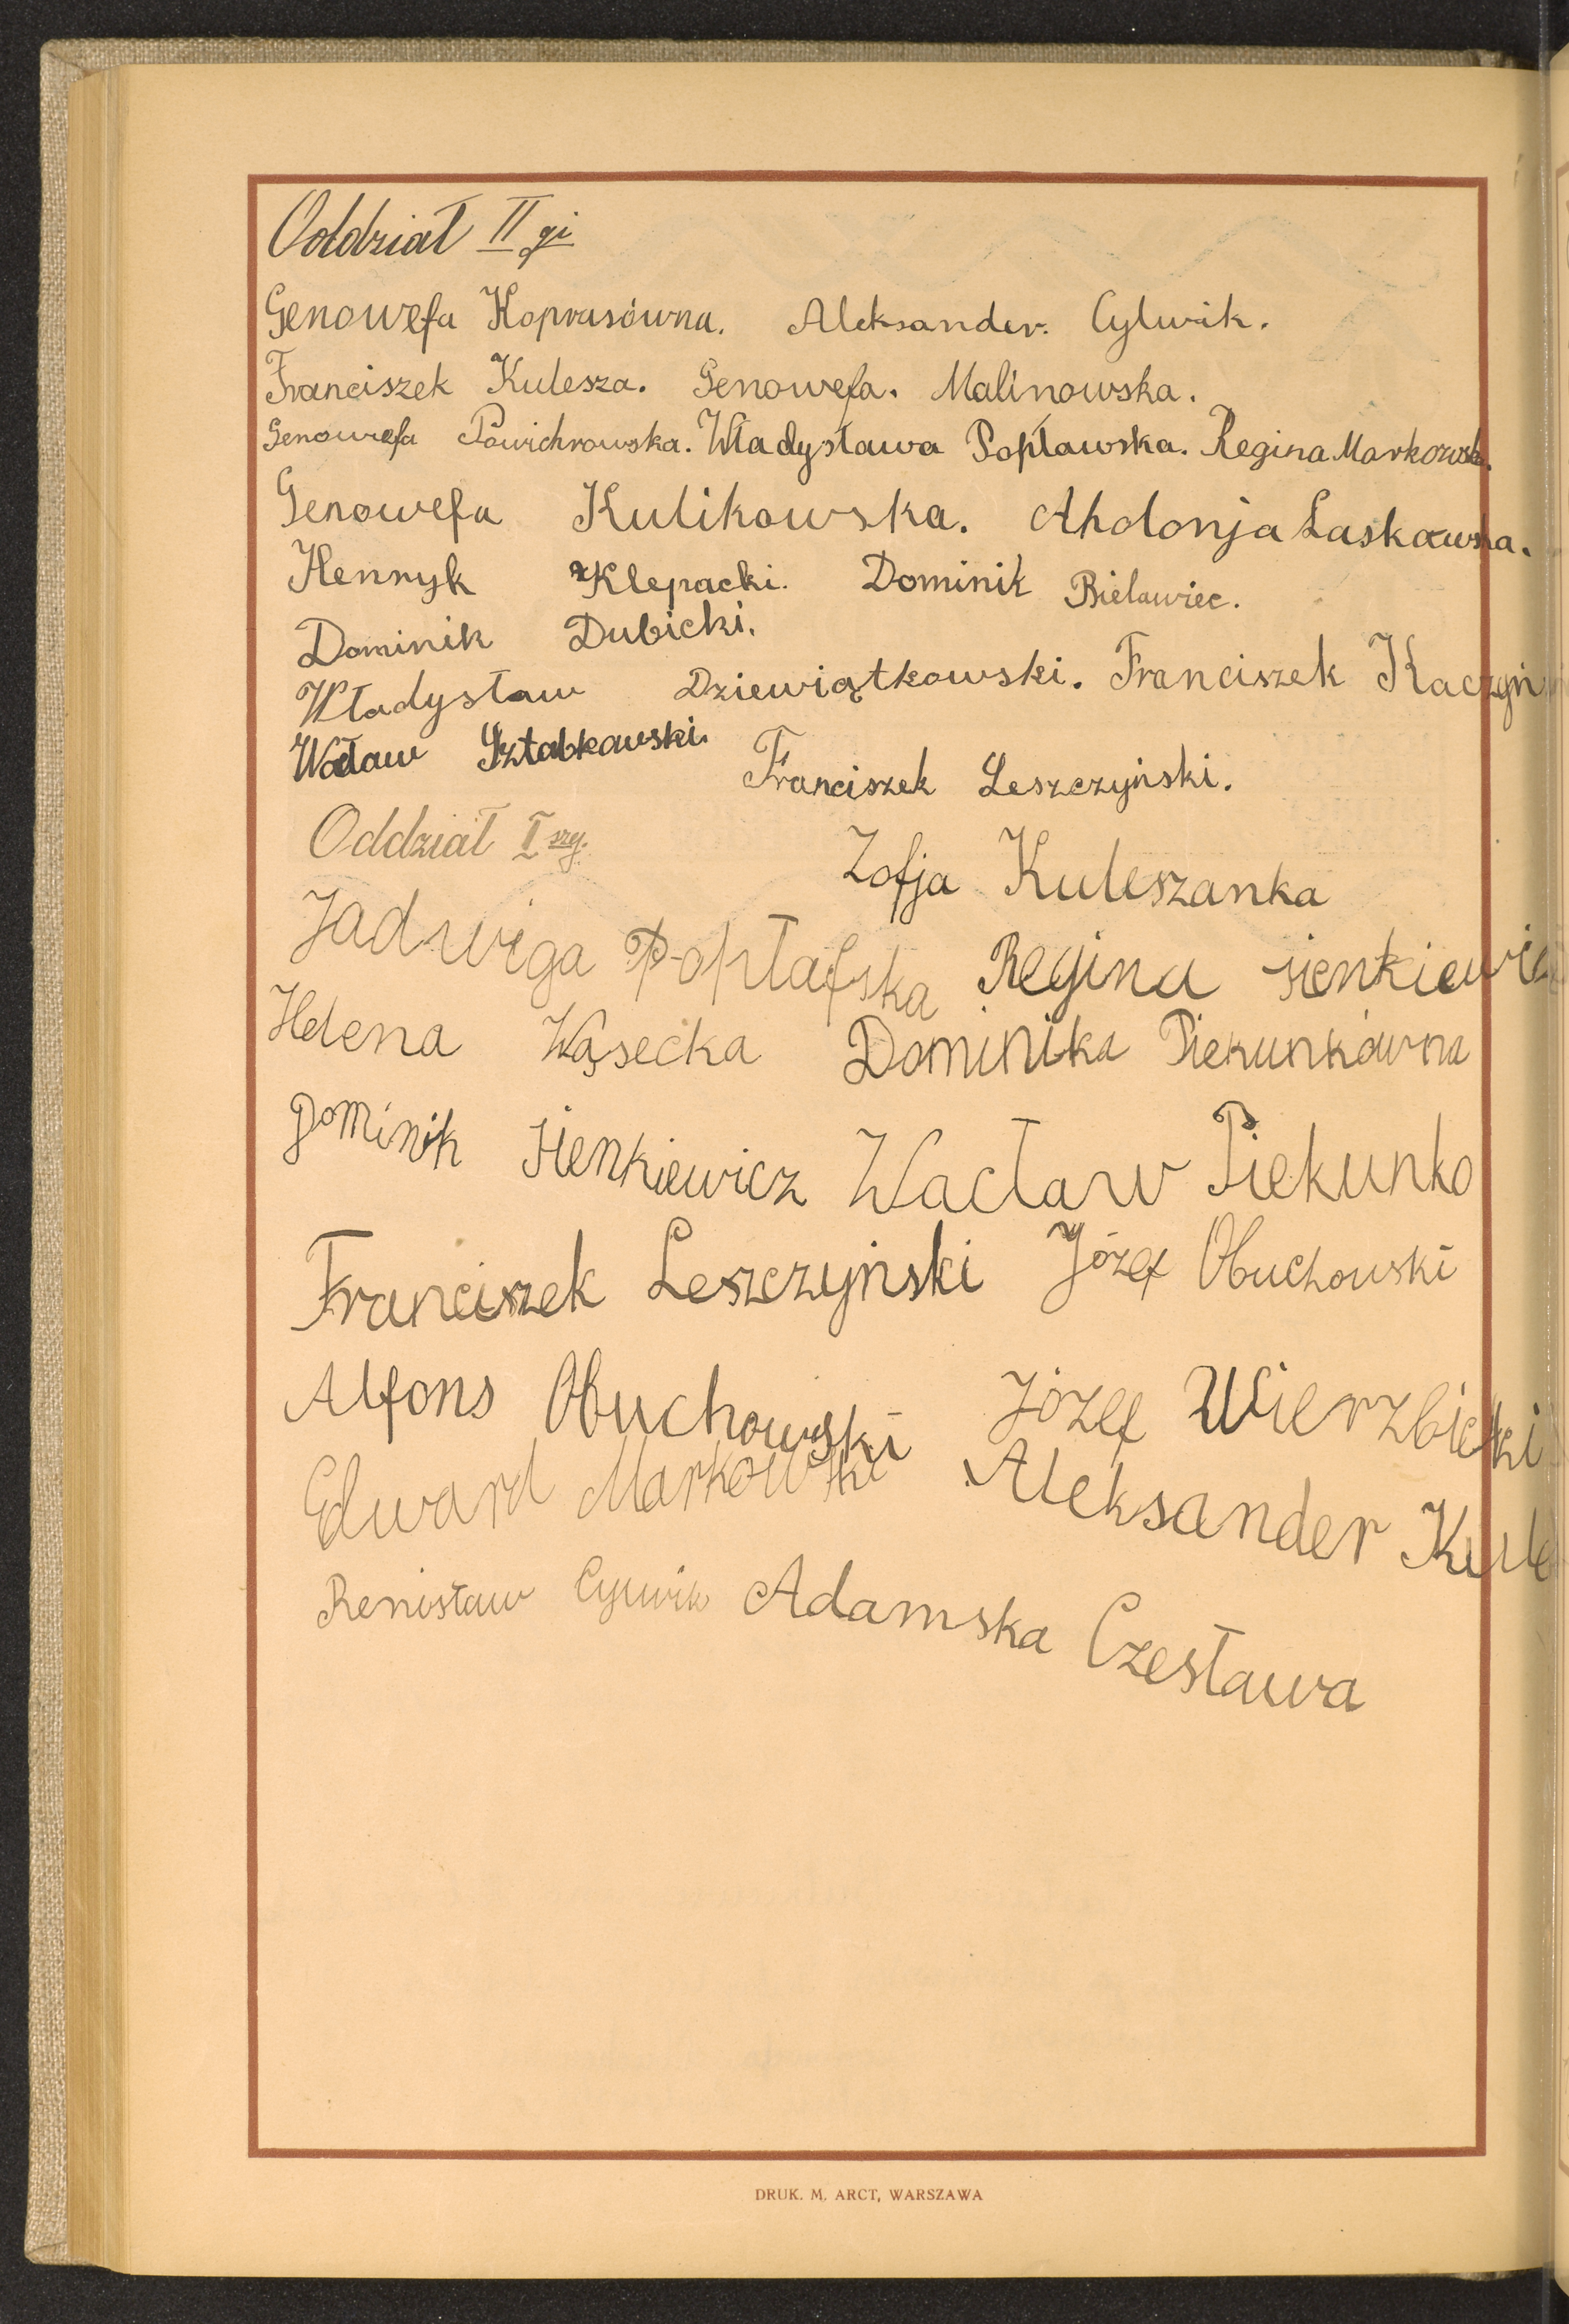 Oddział II gi
Genowefa Koprasówna. Aleksander. Cylwik.
Franciszek Kulesza. Genowefa. Malinowska.
Genowefa Powichrowska. Władysława Popławska. Regina Markowsk.
Genowefa Kulikowska. Ahdonja Laskowska.
Henryk Klepacki. Dominik Bielawiec.
Dominik Dubicki.
Władysław Dziewiątkowski. Franciszek Kaczyń
Wacław Sztabkowski.
Franciszek Leszczyński.
Oddział I szy.
Zofja Kuleszanka
Jadwiga Popłafska Regina sienkiewic
Helena Wąsecka Dominika Piekunkówna
Dominik Sienkiewicz Wacław Piekunko
Franciszek Leszczyński Józef Obuchowski
Alfons Obuchowski Józef Wierzbicki
Edward Markowski Aleksander Kule
Renisław Cylwik Adamska Czesława
DRUK. M. ARCT, WARSZAWA